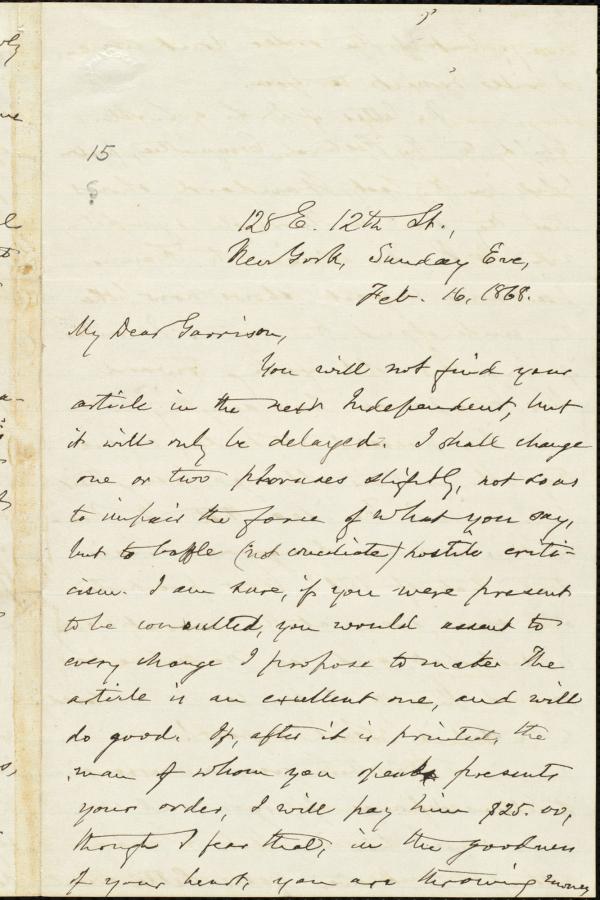 15
?
128 E. 12th St.,
New York, Sunday Eve,
Feb. 16, 1868.
My Dear Garrison,
You will not find your
article in the next Independent, but
it will only be delayed. I shall change
one or two phrases slightly, not so as
to impair the force of what you say,
but to baffle (not conciliate) hostile criti-
cism. I am sure, if you were present
to be consulted, you would assent to
every change I propose to make. The
article is an excellent one, and will
do good. If, after it is printed, the
man of whom you speak presents
your order, I will pay him $25.00,
though I fear that, in the goodness
of your heart, you are throwing money